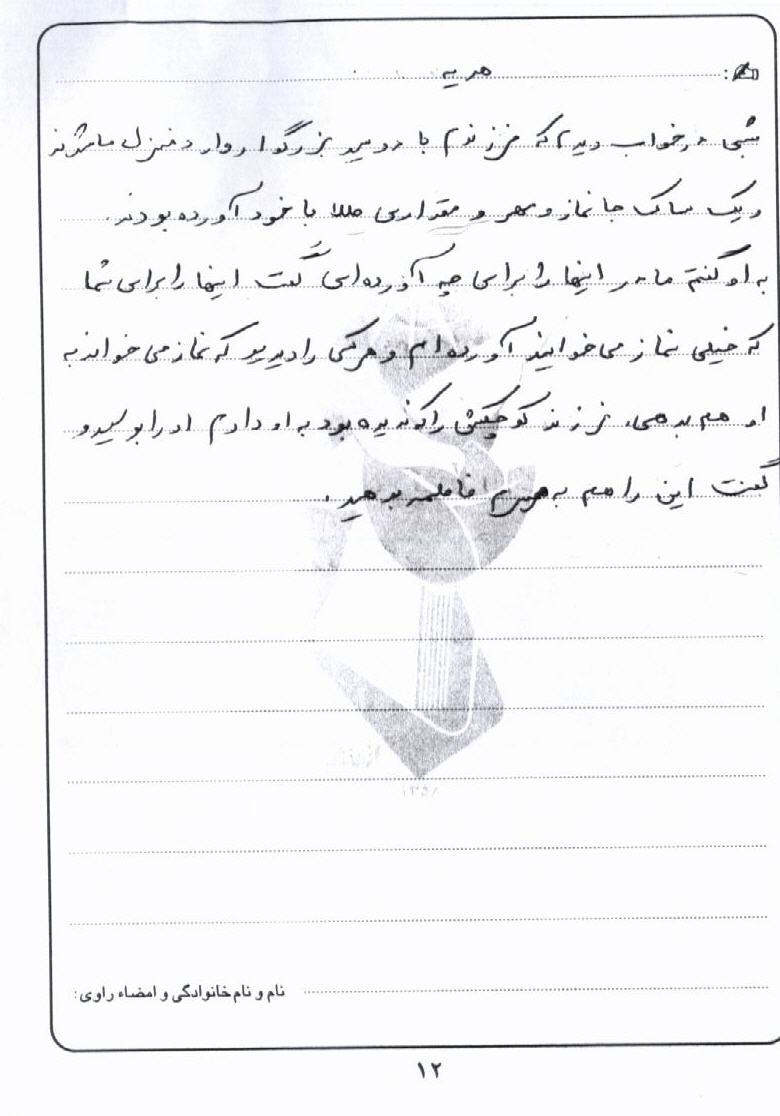 هدیه
شبی درخواب دیدم که فرزندم با دو سید بزرگوار وارد منزل ما شدند
و یک ساک جانماز و مهر و مقداری طلا با خود آورده بودند.
به او گفتم مادر اینها را برای چه آورده‌ای گفت اینها را برای شما
که خیلی نماز می‌خوانید آورده‌ام و هرکسی را دیدید که نماز می‌خواند به
او هم بدهی. فرزند کوچکش را که ندیده بود به او دادم او را بوسید و
گفت این را هم به فاطمه بدهید.
نام و نام خانوادگی و امضاء راوی:
۱۲